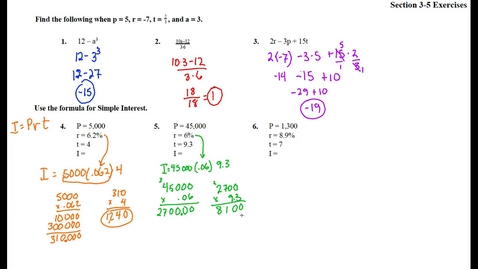 Section 3-5 Exercises
Find the following when p = 5, r = -7, t = 2/3, and a = 3.
1. 12 – a³
12 - 3³
12 - 27
-15
2.
10·3-12
3·6
18/18 = 1
3. 2r – 3p + 15t
2(-7) - 3·5 + 15·2
-14 -15 +10
-29 +10
-19
Use the formula for Simple Interest.
I = Prt
4. P = 5,000
r = 6.2%
t = 4
I =
I = 5000(.062)4
5000
x .062
10000
300000
310,000
310
x 4
1240
5. P = 45,000
r = 6%
t = 9.3
I =
I = 45000(.06)9.3
45000
x .06
2700,00
2700
x 9.3
8100
6. P = 1,300
r = 8.9%
t = 7
I =